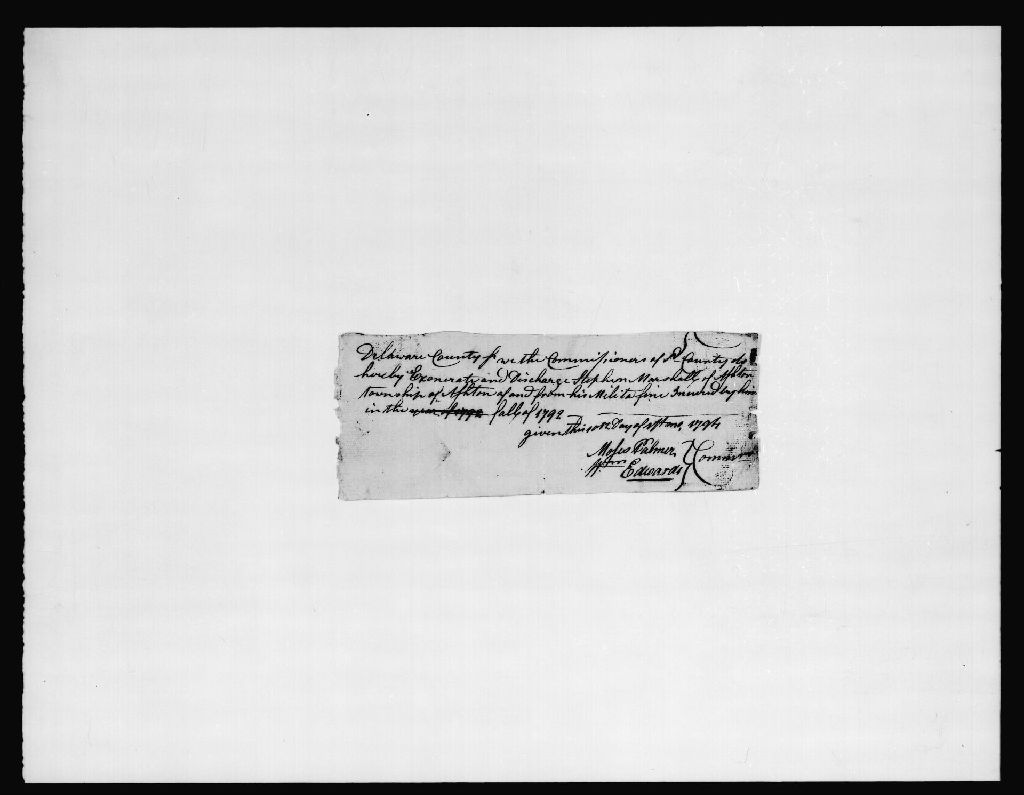 Delaware County ss we the Commissioners of sd County do
hereby Exonerate and Discharge Stephen Marshall of Ashton
township of Ashton of and from his Milita fine Incured by him
in the fall of 1792
given this 10th Day of 1794
Moses Palmer
Wm Edwards } Commisrs